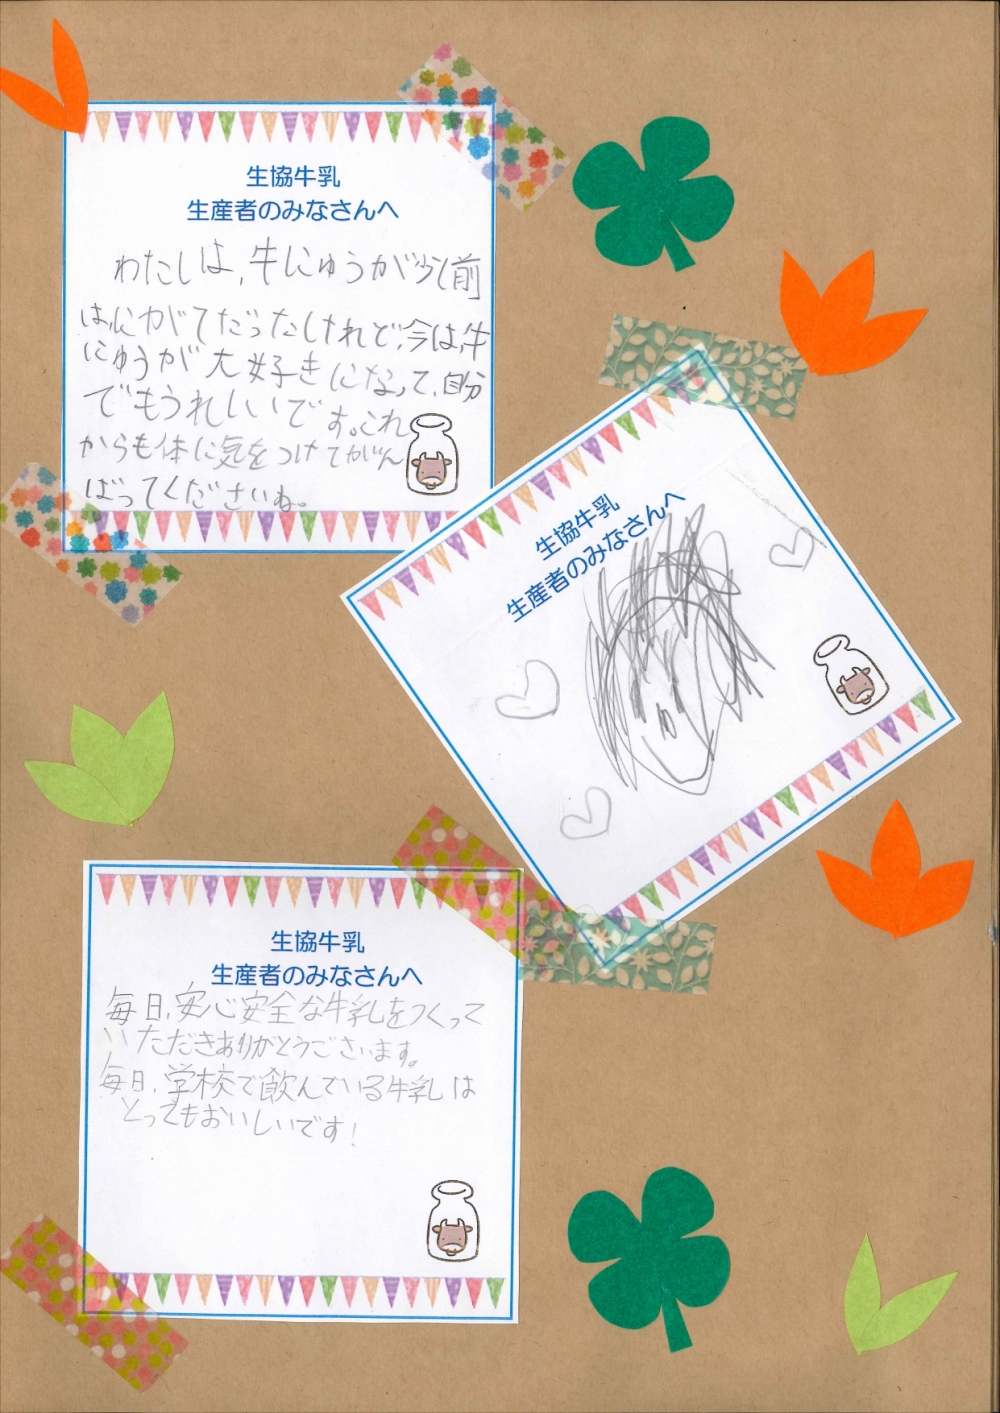 生協牛乳
生産者のみなさんへ
わたしは、牛にゅうが少し前
は、にがてだったけれど、今は、牛
にゅうが大好きになって、自分
でもうれしいです。これ
からも体に気をつけてがん
ばってくださいね。
生協牛乳
生産者のみなさんへ
生協牛乳
生産者のみなさんへ
毎日、安心安全な牛乳をつくって
いただきありがとうございます。
毎日、学校で飲んでいる牛乳は
とってもおいしいです!